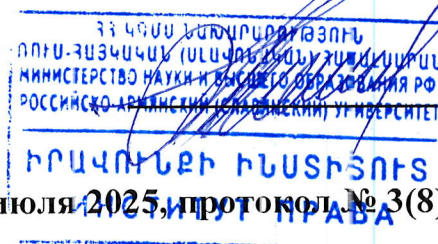 ՀՀ ԿԳՄՍ ՆԱԽԱՐԱՐՈՒԹՅՈՒՆ
ՌՈՒՍ-ՀԱՅԿԱԿԱՆ (ՍԼԱՎՈՆԱԿԱՆ) ՀԱՄԱԼՍԱՐԱՆ
МИНИСТЕРСТВО НАУКИ И ВЫСШЕГО ОБРАЗОВАНИЯ РФ
РОССИЙСКО-АРМЯНСКИЙ (СЛАВЯНСКИЙ) УНИВЕРСИТЕТ
ԻՐԱՎՈՒՆՔԻ ԻՆՍՏԻՏՈՒՏ
июля 2025, протокол № 3(8)
ИНСТИТУТ ПРАВА